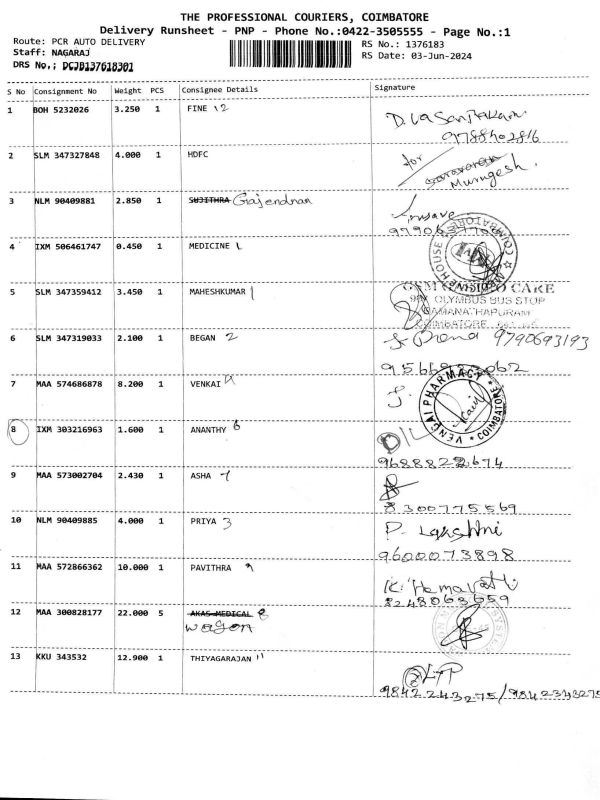 THE PROFESSIONAL COURIERS, COIMBATORE
Delivery Runsheet - PNP - Phone No.:0422-3505555 - Page No.:1
Route: PCR AUTO DELIVERY RS No.: 1376183
Staff: NAGARAJ RS Date: 03-Jun-2024
DRS No.: DCJB137618301
S No Consignment No Weight PCS Consignee Details Signature
1 BOH 5232026 3.250 1 FINE 12
9788402816
2 SLM 347327848 4.000 1 HDFC for
Murugesh.
3 NLM 90409881 2.850 1 SUJITHRA Gajendran
4 IXM 506461747 0.450 1 MEDICINE 1
5 SLM 347359412 3.450 1 MAHESHKUMAR 1
OLYMBUS BUS STOP
RAMANATHAPURAM
COIMBATORE
6 SLM 347319033 2.100 1 BEGAN 2 9790693193
7 MAA 574686878 8.200 1 VENKAI
VENGAI PHARMACY * COIMBATORE
8 IXM 303216963 1.600 1 ANANTHY 6
9688822674
9 MAA 573002704 2.430 1 ASHA 7
8300775569
10 NLM 90409885 4.000 1 PRIYA 3 P. Lakshmi
9600073898
11 MAA 572866362 10.000 1 PAVITHRA 9 K. Hemavathi
8248063659
12 MAA 300828177 22.000 5 AKAS MEDICAL 8
wagon
13 KKU 343532 12.900 1 THIYAGARAJAN 11
9842243275/9842343275